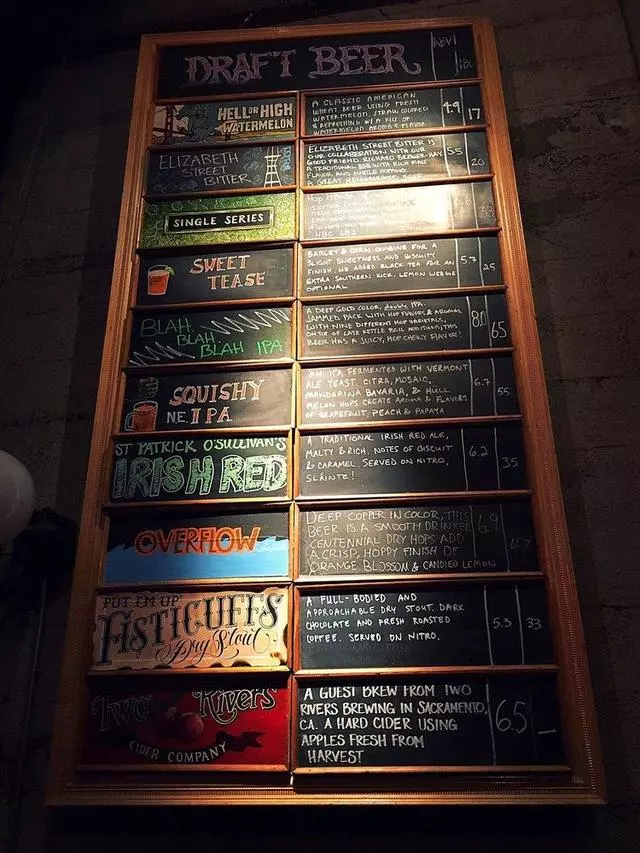 DRAFT BEER
ABV
HELL OR HIGH
WATERMELON
A CLASSIC AMERICAN
WHEAT BEER USING FRESH
WATERMELON. STRAW COLORED
& REFRESHING W/ A KISS OF
WATERMELON AROMA & FLAVOR
4.9
17
ELIZABETH
STREET
BITTER
ELIZABETH STREET BITTER IS
OUR COLLABORATION WITH OUR
GOOD FRIEND RICHARD
A TRADITIONAL ESB WITH RICH MALT
FLAVOR AND SUBTLE HOPPING
A GREAT NEIGHBORHOOD BEER
5.5
20
SINGLE SERIES
SWEET
TEASE
BARLEY & CORN COMBINE FOR A
SLIGHT SWEETNESS AND BISCUITY
FINISH. WE ADDED BLACK TEA FOR AN
EXTRA SOUTHERN KICK. LEMON WEDGE
OPTIONAL
5.7
25
BLAH.
BLAH.
BLAH IPA
A DEEP GOLD COLOR, double IPA.
JAMMED PACK WITH HOP FLAVOR & AROMA.
WITH NINE DIFFERENT HOP VARIETALS,
ON TOP OF LATE KETTLE BOIL ADDITIONS, THIS
BEER HAS A JUICY, HOP CHEWY FLAVOR!
8.0
65
SQUISHY
N.E. IPA
AN IPA FERMENTED WITH VERMONT
ALE YEAST. CITRA, MOSAIC,
MANDARINA BAVARIA, & HULL
MELON HOPS CREATE AROMA & FLAVORS
OF GRAPEFRUIT, PEACH & PAPAYA
6.7
55
ST PATRICK O'SULLIVAN'S
IRISH RED
A TRADITIONAL IRISH RED ALE,
MALTY & RICH. NOTES OF BISCUIT
& CARAMEL. SERVED ON NITRO,
SLÁINTE!
6.2
35
OVERFLOW
DEEP COPPER IN COLOR, THIS
BEER IS A SMOOTH DRINKER
CENTENNIAL DRY HOPS ADD
A CRISP, HOPPY FINISH OF
ORANGE BLOSSOM & CANDIED LEMON
6.9
47
PUT EM UP
FISTICUFFS
Dry Stout
A FULL-BODIED AND
APPROACHABLE DRY STOUT. DARK
CHOCOLATE AND FRESH ROASTED
COFFEE. SERVED ON NITRO.
5.3
33
Two Rivers
CIDER COMPANY
A GUEST BREW FROM TWO
RIVERS BREWING IN SACRAMENTO,
CA. A HARD CIDER USING
APPLES FRESH FROM
HARVEST
6.5
—